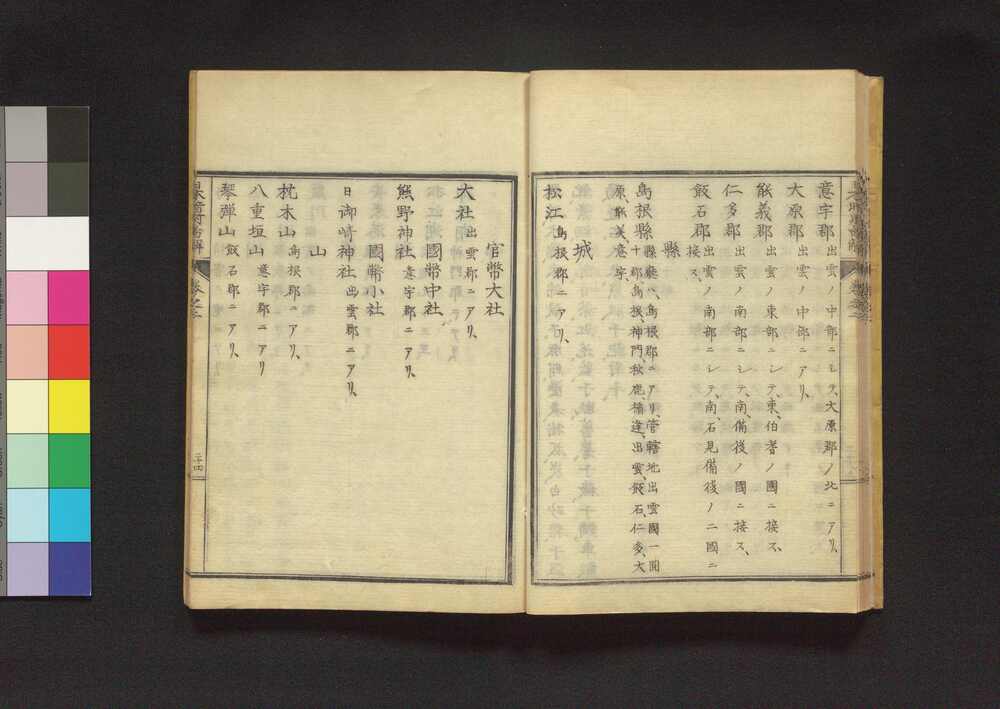 意宇郡 出雲ノ中部ニシテ、大原郡ノ北ニアリ、
大原郡 出雲ノ中部ニアリ、
能義郡 出雲ノ東部ニシテ、東、伯耆ノ國ニ接ス、
仁多郡 出雲ノ南部ニシテ、南、備後ノ國ニ接ス、
飯石郡 出雲ノ南部ニシテ、南、石見備後ノ二國ニ
接ス、
縣
島根縣 縣廳ハ、島根郡ニアリ、管轄地出雲國一圓
十郡島根、神門、秋鹿、楯縫、出雲、飯石、仁多、大
原、能義、意宇、
城
松江 島根郡ニアリ、
官幣大社
大社 出雲郡ニアリ、
國幣中社
熊野神社 意宇郡ニアリ、
國幣小社
日御崎神社 出雲郡ニアリ、
山
枕木山 島根郡ニアリ、
八重垣山 意宇郡ニアリ
琴彈山 飯石郡ニアリ、
卷之二
二十四